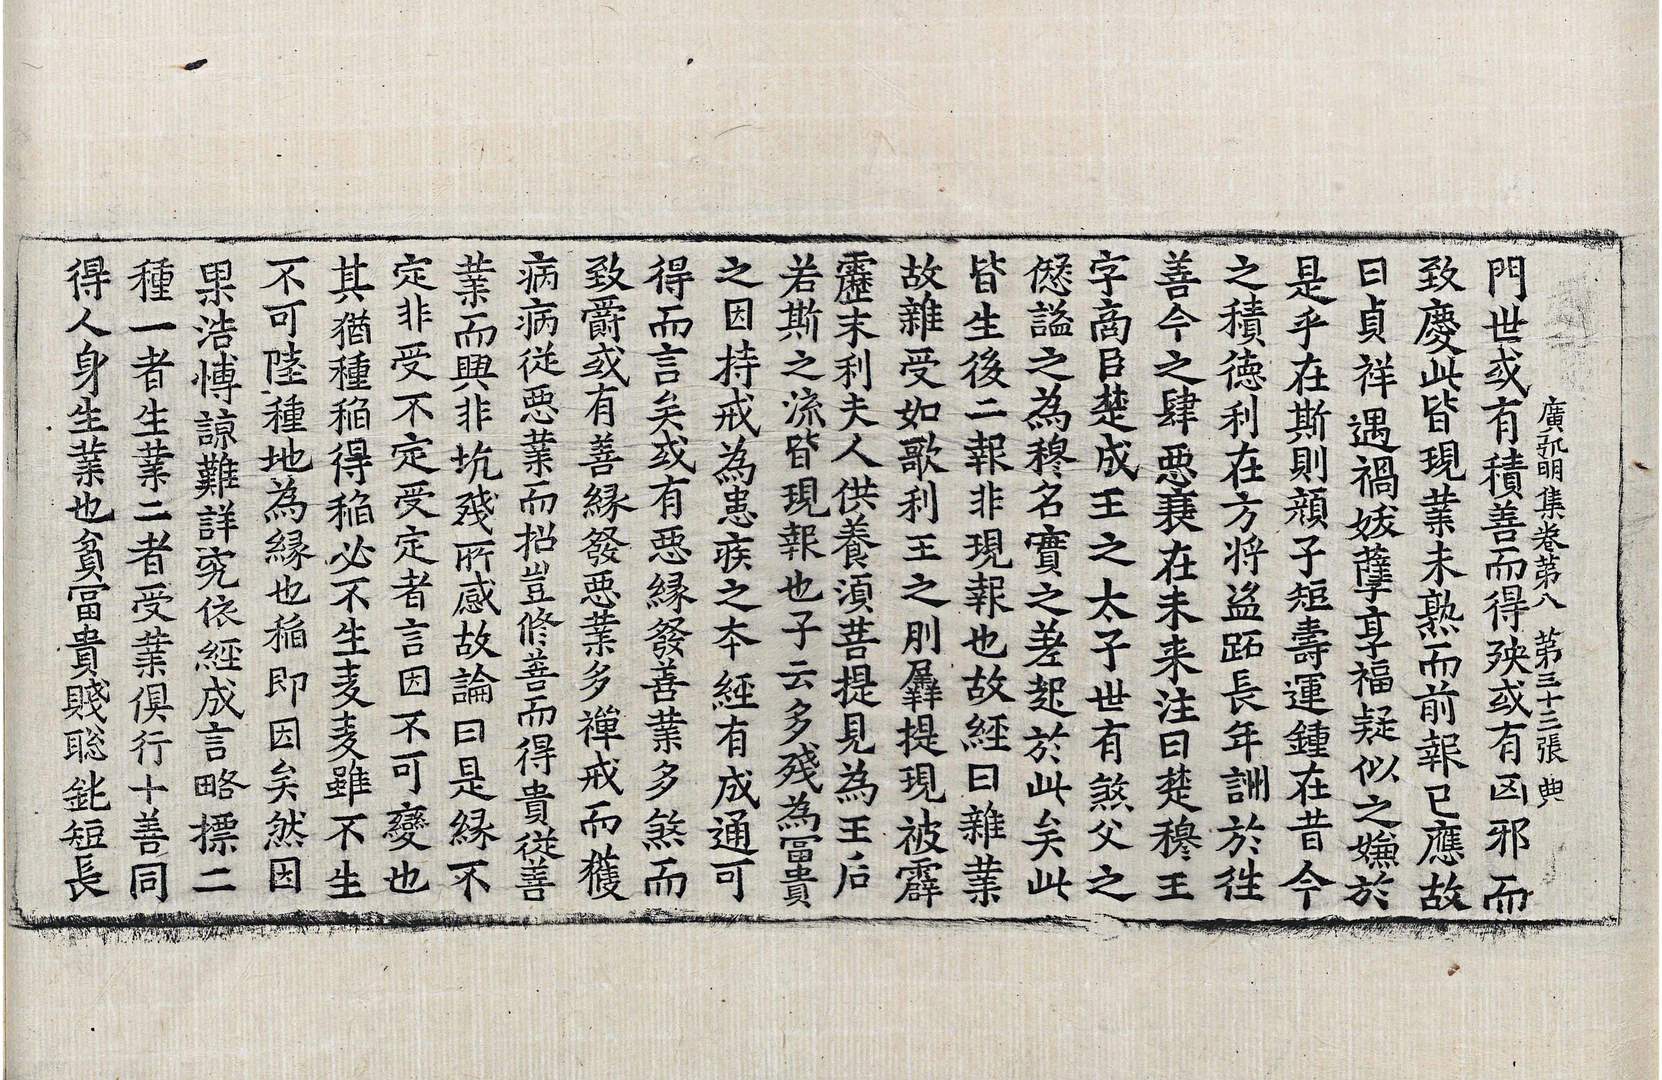 廣弘明集卷第八　第三十三張　典
門世或有積善而得殃或有凶邪而
致慶此皆現業未熟而前報已應故
曰貞祥遇禍妖孽享福疑似之嫌於
是乎在斯則顏子短壽運鍾在昔今
之積德利在方將盜跖長年詶於往
善今之肆惡衰在未來注曰楚穆王
字商臣楚成王之太子世有煞父之
愆謚之為穆名實之差起於此矣此
皆生後二報非現報也故經曰雜業
故雜受如歌利王之刖羼提現被霹
靂末利夫人供養須菩提見為王后
若斯之流皆現報也子云多殘為富貴
之因持戒為患疾之本經有成通可
得而言矣或有惡緣發善業多煞而
致爵或有善緣發惡業多禪戒而獲
病病從惡業而招豈修善而得貴從善
業而興非坑殘所感故論曰是緣不
定非受不定受定者言因不可變也
其猶種稻得稻必不生麦麦雖不生
不可陸種地為緣也稻即因矣然因
果浩博諒難詳究依經成言略標二
種一者生業二者受業俱行十善同
得人身生業也貧富貴賤聡鈍短長